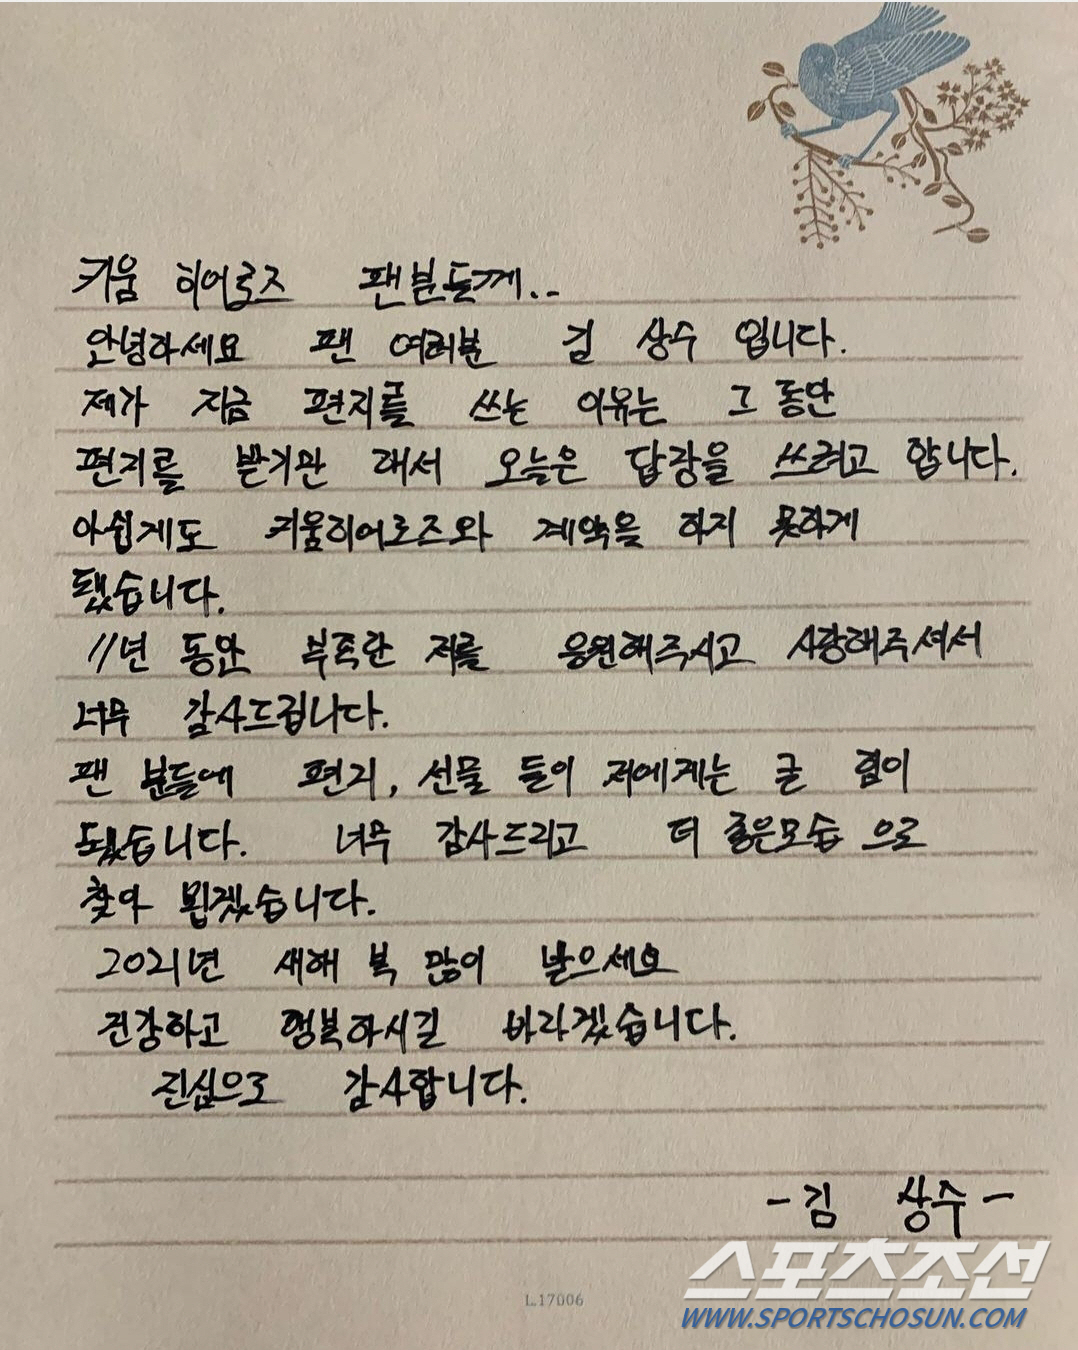 키움 히어로즈 팬분들께..
안녕하세요 팬 여러분 김 상수 입니다.
제가 지금 편지를 쓰는 이유는 그 동안
편지를 받기만 해서 오늘은 답장을 쓰려고 합니다.
아쉽게도 키움히어로즈와 계약을 하지 못하게
됐습니다.
11년 동안 부족한 저를 응원해주시고 사랑해주셔서
너무 감사드립니다.
팬 분들에 편지, 선물 들이 저에게는 큰 힘이
됬습니다. 너무 감사드리고 더 좋은모습 으로
찾아 뵙겠습니다.
2021년 새해 복 많이 받으세요
건강하고 행복하시길 바라겠습니다.
진심으로 감사합니다.
-김 상수-
스포츠조선
WWW.SPORTSCHOSUN.COM
L.17006